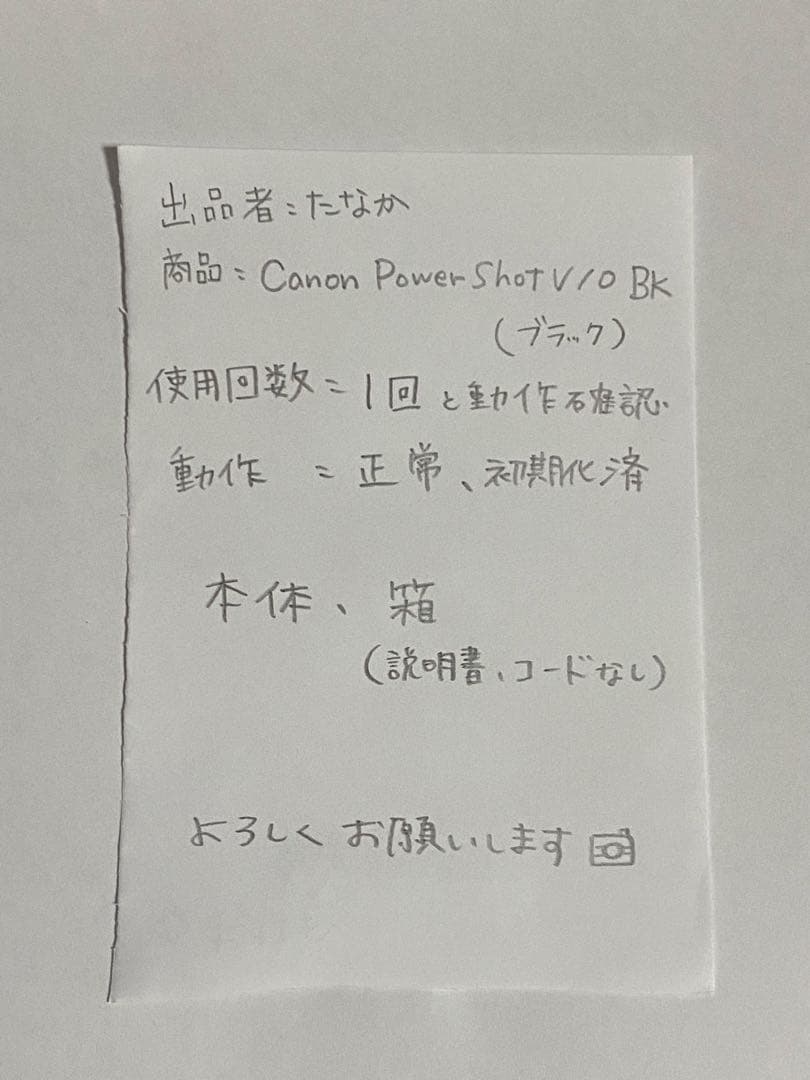 出品者:たなか
商品:Canon PowerShot V10 BK
(ブラック)
使用回数=1回と動作確認
動作=正常、初期化済
本体、箱
(説明書、コードなし)
よろしくお願いします